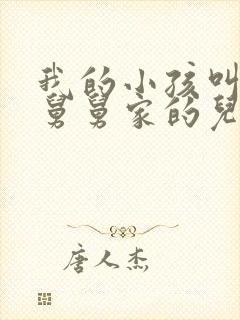 我的小孩叫
舅舅家的兒
唐人杰